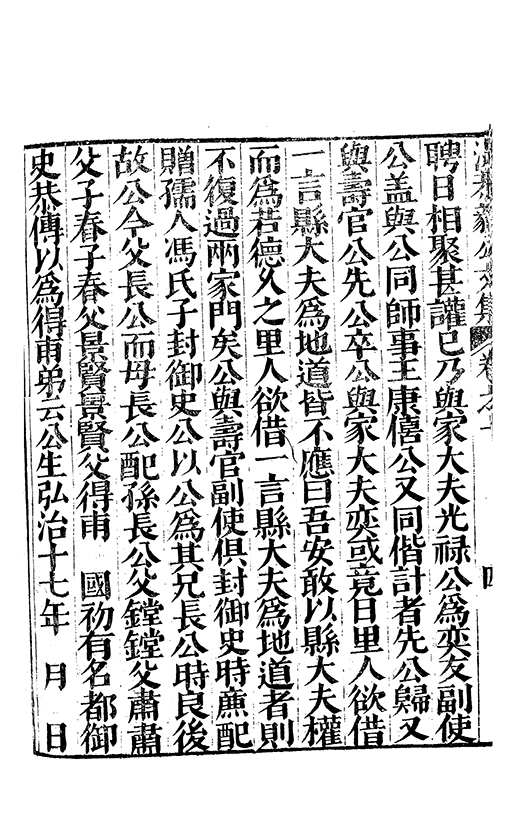 公文集 卷之
聘日相聚甚讙已乃與家大夫光祿公爲奕友副使
公盖與公同師事王康僖公又同偕計者先公歸又
與壽官公先公卒公與家大夫奕或竟日里人欲借
一言縣大夫爲地道皆不應曰吾安敢以縣大夫權
而爲若德久之里人欲借一言縣大夫爲地道者則
不復過兩家門矣公與壽官副使俱封御史時廡配
贈孺人馮氏子封御史公以公爲其兄長公時良後
故公今父長公而母長公配孫長公父鏜鏜父肅肅
父子春子春父景賢景賢父得甫 國初有名都御
史恭傳以爲得甫弟云公生弘治十七年 月 日